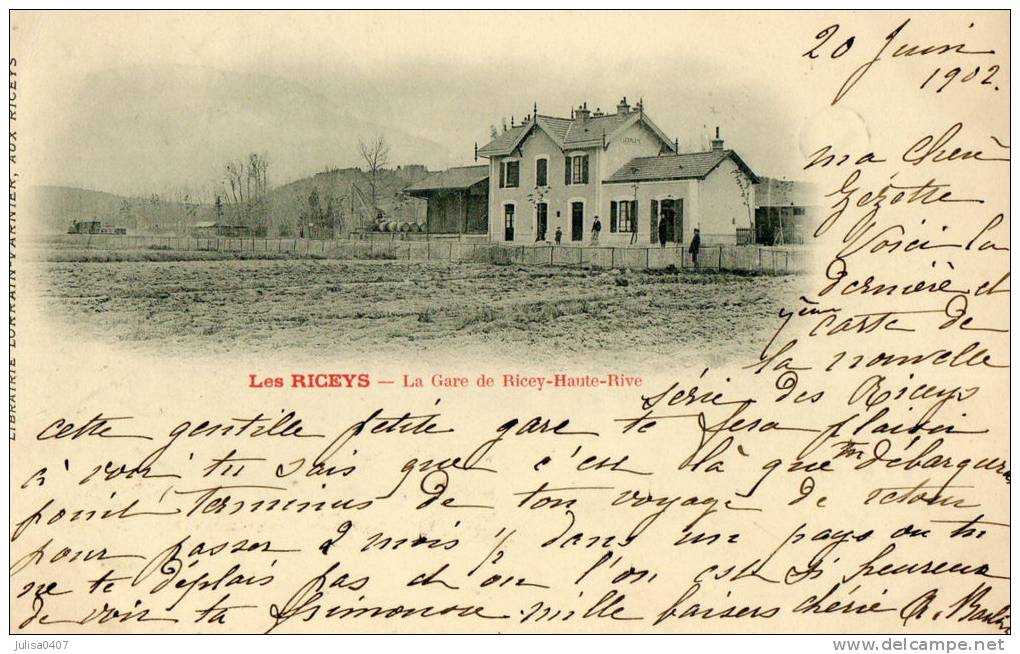 LIBRAIRIE LORRAIN-VARNIER, AUX RICEYS
20 Juin
1902.
ma Chère
Gézotte
Voici la
dernière et
9ème carte de
la nouvelle
série des Riceys
Les RICEYS — La Gare de Ricey-Haute-Rive
cette gentille petite gare te fera plaisir
à voir tu sais que c'est là que tu débarquera
point terminus de ton voyage de retour
pour passer 2 mois ½ dans un pays où tu
ne te déplais pas et où l'on est si heureux
de voir ta frimousse mille baisers chérie
julisa0407
www.delcampe.net